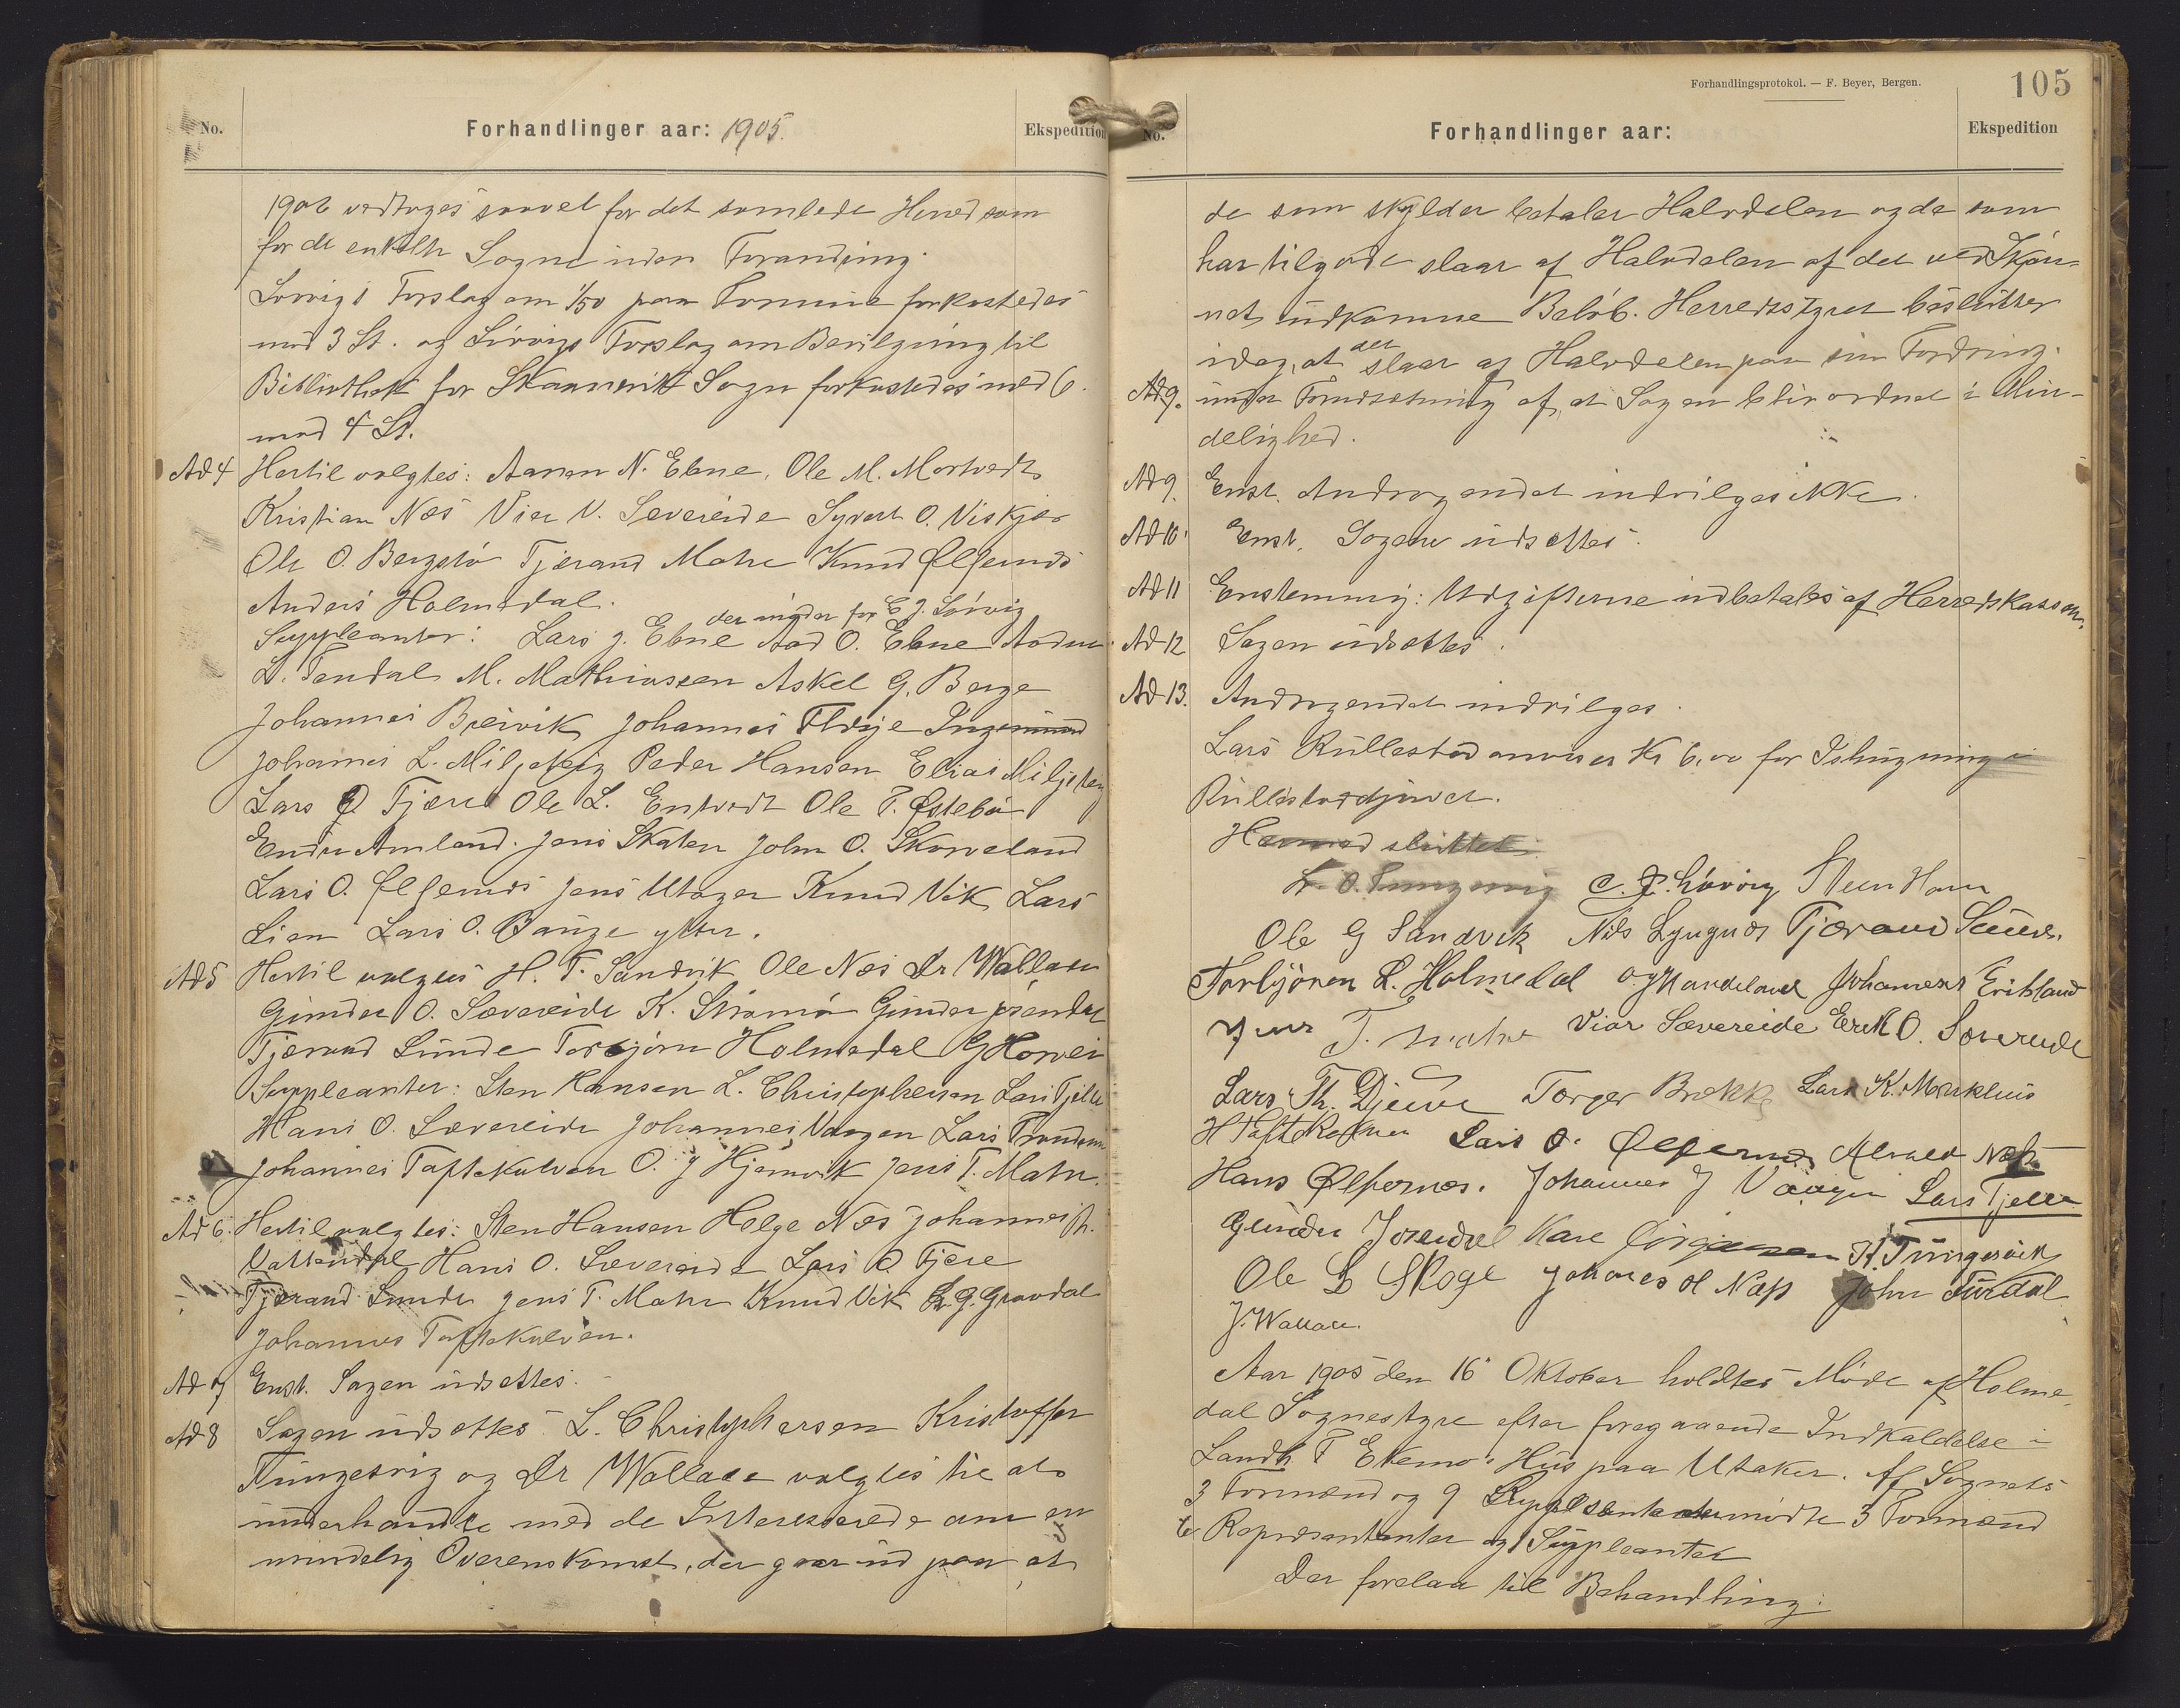 No.
Forhandlinger aar: 1905.
Ekspedition
1906 vedtoges saavel for det samlede Herred som
for de enkelte Sogne uden Forandring.
Sørvigs Forslag om 1/50 paa Formue forkastedes
mod 3 St. og Sørvigs Forslag om Bevilgning til
Bibliothek for Skaanevik Sogn forkastedes med 6
mod 4 St.
Ad 4 Hertil valgtes: Aamon N. Ebne, Ole M. Mortvedt
Kristian Næs Vier V. Severeide Syvert O. Viskjær
Ole O. Bergstø Tjerand Matre Knud Ølfernæs
Anders Holmedal.
der møder for E J. Sørvig
Suppleanter: Lars J. Ebne Aad O. Ebne Aadne
L. Tendal M. Mathiassen Askel G. Berge
Johannes Breivik Johannes Ingemund
Johannes L. Miljeteig Peder Hansen Elias Miljeteig
Lars O Tjære Ole L. Entvedt Ole P. Østebø
Endre Amland. Jens Skaten John O. Skorveland
Lars O. Ølfernæs Jens Utager Knud Vik Lars
Lien Lars O. Bauge ytter.
Ad 5 Hertil valgtes H. T. Sandvik Ole Næs Dr Wallace
Gunder O. Sævereide K. Strømø Gunder Jrendal
Tjerand Sunde Torbjørn Holmedal G Horvei
Suppleanter: Sten Hansen L. Christophersen Lars Tjelle
Hans O. Sævereide Johannes Vaagen Lars
Johannes Toftekalven O. J Hjemvik Jens T. Matre.
Ad 6. Hertil valgtes: Sten Hansen Helge Næs Johannes H.
Vattendal Hans O. Sævereide Lars O Tjære
Tjerand Sunde Jens T. Matre Knud Vik G. Gravdal
Johannes Toftekalven.
Ad 7 Enst. Sagen udsettes.
Ad 8 Sagen udsettes. L. Christophersen Kristoffer
Tungesvig og Dr Wallace valgtes til at
underhandle med de Interesserede om en
mindelig Overenskomst, der gaar ud paa, at
Forhandlingsprotokol. — F. Beyer, Bergen.
105
No.
Forhandlinger aar:
Ekspedition
de som skylder betaler Halvdelen og de som
har tilgode slaar af Halvdelen af det ved Skjøn-
net udkomne Beløb. Herredsstyret beslutter
idag, at det slaar af Halvdelen paa sin Fordring.
Ad 9. under Forudsetning af, at Sagen blir ordnet i Min-
delighed.
Ad 9. Enst. Andragendet indvilges ikke.
Ad 10. Enst. Sagen udsettes.
Ad 11 Enstemmig: Udgifterne udbetales af Herredskassen.
Ad 12 Sagen udsettes.
Ad 13. Andragendet indvilges.
Lars Rullestad anvises Kr 6,00 for Ishugning i
Rullestadjuvet.
Hermed sluttet.
K. O. Tungesvig C. J. Sørvig Steen Hansen
Ole G Sandvik Nils Lyngnæs Tjærand Sunde.
Torbjörnen L. Holmedal O J Mandelaved Johannes Eriksland
Jens T. Matre Viar Sævereide Erik O. Sævereide
Lars Th. Djuve Torger Brekke Lars K. Markhus
H Toftekalven Lars O. Ølfernes Næss
Hans Ølfernæs. Johannes J Vaagen Lars Tjelle
Gunder Jrendal Kare Jörgensen K. Tungesvik
Ole L Skoge Johanes H Næss John Furdal
J. Wallace.
Aar 1905 den 16' Oktober holdtes Møde af Holme-
dal Sognestyre efter foregaaende Indkaldelse i
Landh. P Ekemo's Hus paa Utaker. Af Sognets
3 Formænd og 9 mødte 3 Formænd
6 Repræsentanter og 1 Suppleanter
Der forelaa til Behandling: